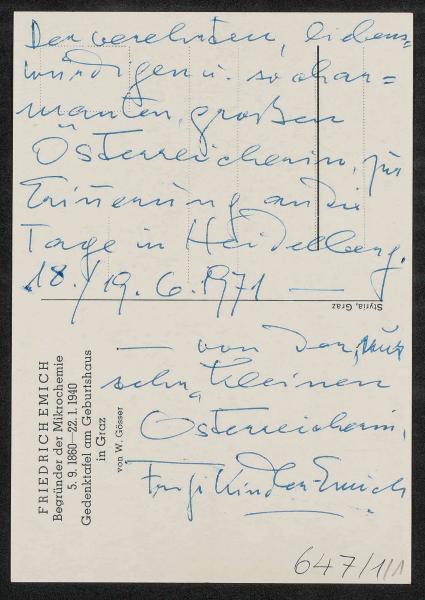 Der verehrten, liebens=
würdigen u. so char=
manten, großen
Österreicherin, zur
Erinnerung an die
Tage in Heidelberg.
18./19. 6. 1971 —
Styria, Graz
— von der "nur
sehr" kleinen
Österreicherin,
Kindler-Emich
FRIEDRICH EMICH
Begründer der Mikrochemie
5. 9. 1860—22. 1. 1940
Gedenktafel am Geburtshaus
in Graz
von W. Gösser
647/1/1